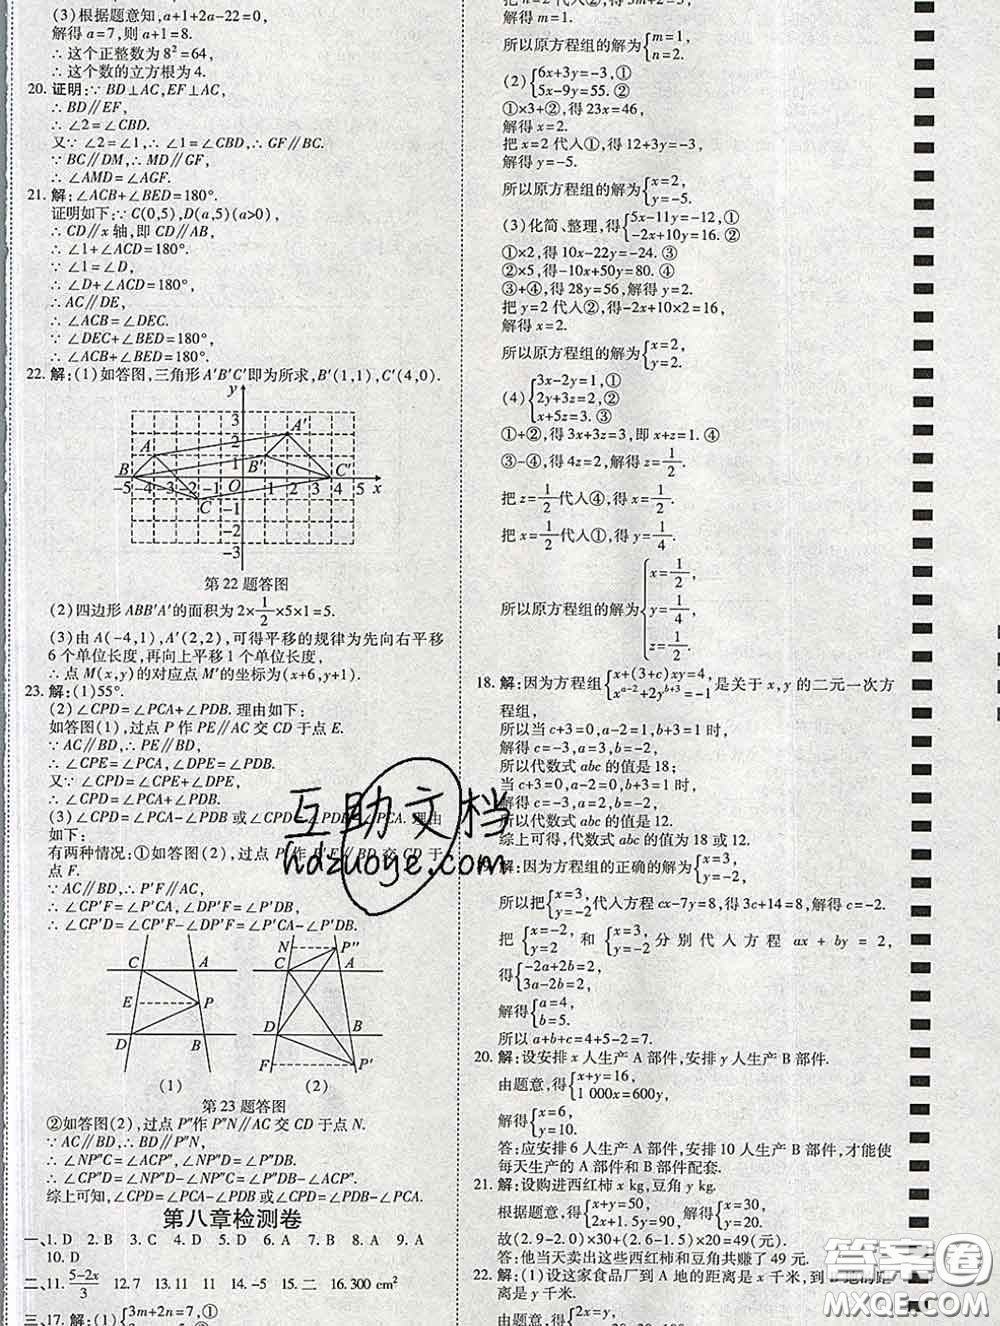 (3)根据题意知,a+1+2a-22=0,
解得a=7,则a+1=8.
∴这个正整数为8²=64,
∴这个数的立方根为4.
20. 证明:∵BD⊥AC,EF⊥AC,
∴BD∥EF,
∴∠2=∠CBD.
又∵∠2=∠1,∴∠1=∠CBD,∴GF∥BC.
∵BC∥DM,∴MD∥GF,
∴∠AMD=∠AGF.
21. 解:∠ACB+∠BED=180°.
证明如下:∵C(0,5),D(a,5)(a>0),
∴CD∥x轴,即CD∥AB,
∴∠1+∠ACD=180°.
∵∠1=∠D,
∴∠D+∠ACD=180°,
∴AC∥DE,
∴∠ACB=∠DEC.
∵∠DEC+∠BED=180°,
∴∠ACB+∠BED=180°.
22. 解:(1)如答图,三角形A′B′C′即为所求,B′(1,1),C′(4,0).
y
3
2
1
A
A′
B
B′
C″
C
-5 -4 -3 -2 -1 O 1 2 3 4 5 x
-1
-2
-3
第22题答图
(2)四边形ABB′A′的面积为2×1/2×5×1=5.
(3)由A(-4,1),A′(2,2),可得平移的规律为先向右平移
6个单位长度,再向上平移1个单位长度,
∴点M(x,y)的对应点M′的坐标为(x+6,y+1).
23. 解:(1)55°.
(2)∠CPD=∠PCA+∠PDB. 理由如下:
如答图(1),过点P作PE∥AC交CD于点E.
∵AC∥BD,∴PE∥BD,
∴∠CPE=∠PCA,∠DPE=∠PDB.
又∵∠CPD=∠CPE+∠DPE,
∴∠CPD=∠PCA+∠PDB.
(3)∠CPD=∠PCA-∠PDB或∠CPD=∠PDB-∠PCA. 理由
如下:
有两种情况:①如答图(2),过点P′作P′F∥BD交CD于
点F.
∵AC∥BD,∴P′F∥AC,
∴∠CP′F=∠P′CA,∠DP′F=∠P′DB,
∴∠CP′D=∠CP′F-∠DP′F=∠P′CA-∠P′DB.
C A E P D B (1)
N P″ C A D B F P′ (2)
第23题答图
②如答图(2),过点P″作P″N∥AC交CD于点N.
∵AC∥BD,∴BD∥P″N,
∴∠NP″C=∠ACP″,∠NP″D=∠P″DB.
∴∠CP″D=∠NP″D-∠NP″C=∠P″DB-∠P″CA.
综上可知,∠CPD=∠PCA-∠PDB或∠CPD=∠PDB-∠PCA.
第八章检测卷
一、1. D 2. B 3. C 4. D 5. D 6. A 7. B 8. A 9. A
10. D
二、11. (5-2x)/3 12. 7 13. 11 11 14. -5 15. 二 16. 300 cm²
三、17. 解:(1){3m+2n=7,①
解得m=1.
所以原方程组的解为{m=1, n=2.
(2){6x+3y=-3,① 5x-9y=55. ②
①×3+②,得23x=46,
解得x=2.
把x=2代入①,得12+3y=-3,
解得y=-5.
所以原方程组的解为{x=2, y=-5.
(3)化简、整理,得{5x-11y=-12,① -2x+10y=16. ②
①×2,得10x-22y=-24. ③
②×5,得-10x+50y=80. ④
③+④,得28y=56,解得y=2.
把y=2代入②,得-2x+10×2=16.
解得x=2.
所以原方程组的解为{x=2, y=2.
(4){3x-2y=1,① 2y+3z=2,② x+5z=3. ③
①+②,得3x+3z=3,即x+z=1. ④
③-④,得4z=2,解得z=1/2.
把z=1/2代入④,得x=1/2.
把x=1/2代入①,得y=1/4.
所以原方程组的解为{x=1/2, y=1/4, z=1/2.
18. 解:因为方程组{x+(3+c)xy=4, x^{a-2}+2y^{b+3}=-1是关于x,y的二元一次方
程组,
所以当c+3=0,a-2=1,b+3=1时,
解得c=-3,a=3,b=-2,
所以代数式abc的值是18;
当c+3=0,a-2=0,b+3=1时,
解得c=-3,a=2,b=-2,
所以代数式abc的值是12.
综上可得,代数式abc的值为18或12.
解:因为方程组的正确的解为{x=3, y=-2,
所以把{x=3, y=-2代入方程cx-7y=8,得3c+14=8,解得c=-2.
把{x=-2, y=2和{x=3, y=-2分别代入方程ax+by=2,
得{-2a+2b=2, 3a-2b=2,
解得{a=4, b=5.
所以a+b+c=4+5-2=7.
20. 解:设安排x人生产A部件,安排y人生产B部件.
由题意,得{x+y=16, 1 000x=600y,
解得{x=6, y=10.
答:应安排6人生产A部件,安排10人生产B部件,才能使
每天生产的A部件和B部件配套.
21. 解:设购进西红柿x kg,豆角y kg.
根据题意,得{x+y=50, 2x+1.5y=90,解得{x=30, y=20.
故(2.9-2.0)×30+(2.6-1.5)×20=49(元).
答:他当天卖出这些西红柿和豆角共赚了49元.
22. 解:(1)设这家食品厂到A地的距离是x千米,到B地的距
离是y千米.
根据题意,得{2x=y,
互助文档
hdzuoye.com
答案圈
MXQE.COM